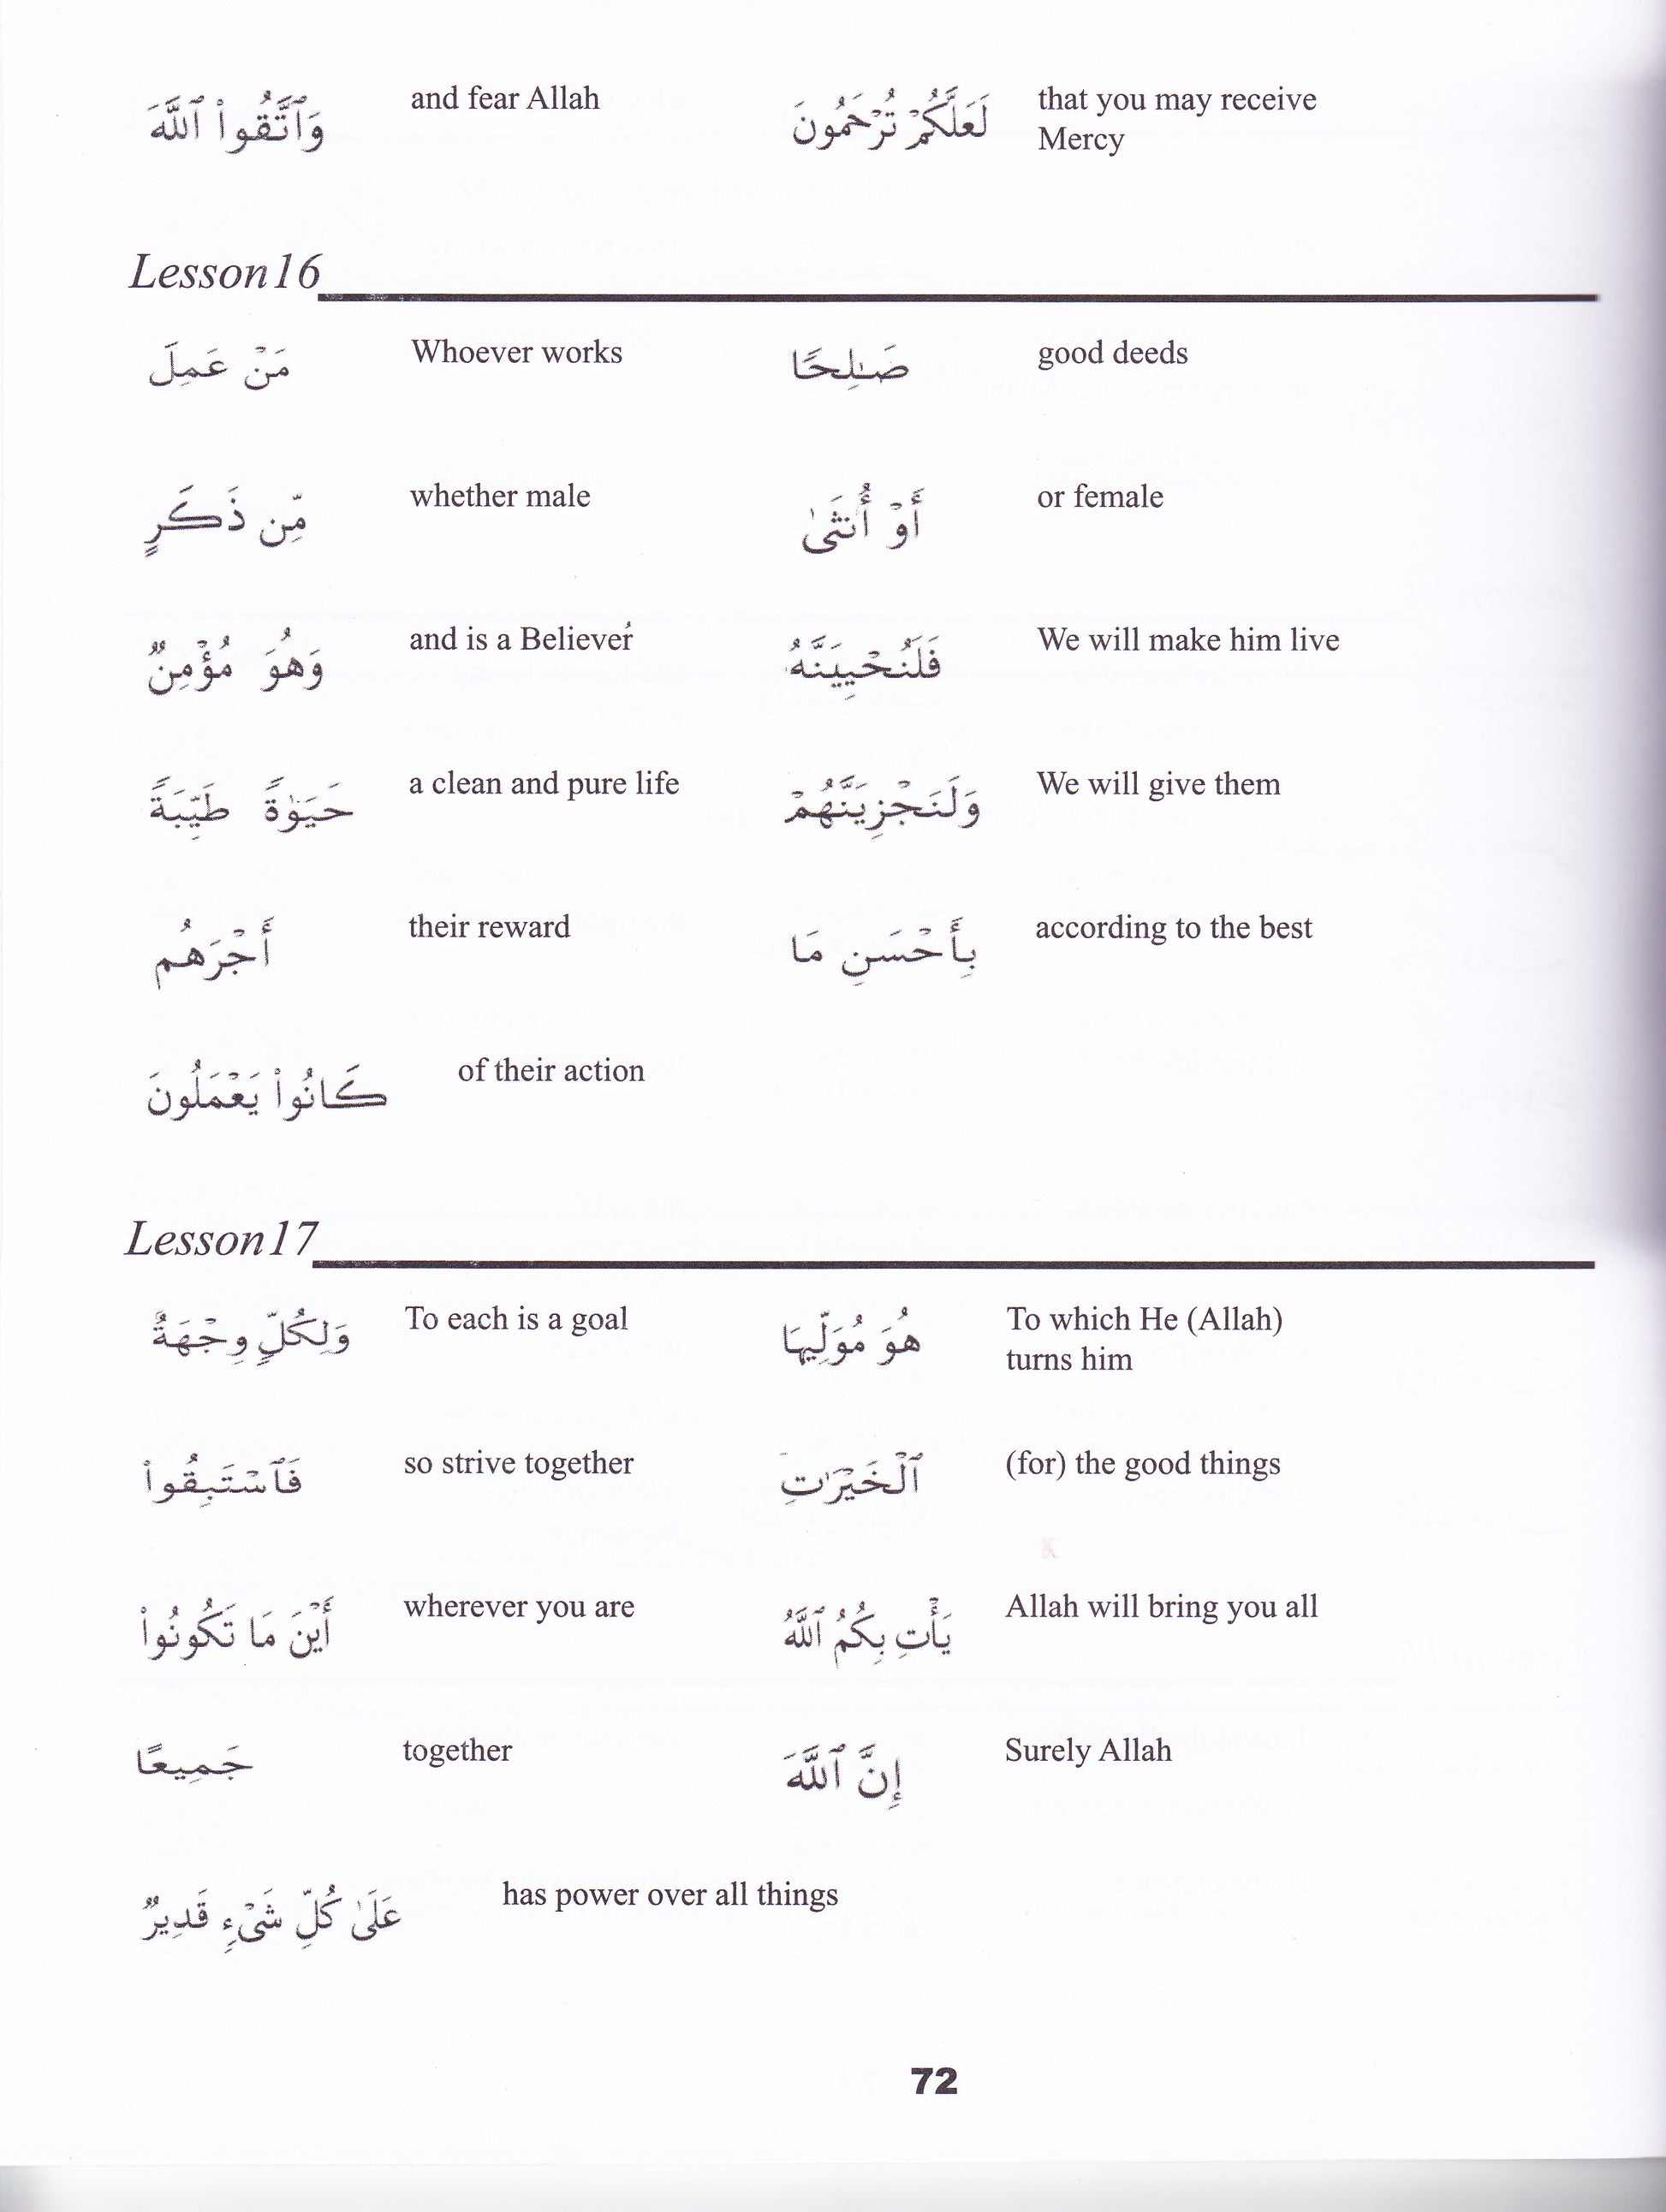 وَٱتَّقُوا۟ ٱللَّهَ and fear Allah لَعَلَّكُمْ تُرْحَمُونَ that you may receive
Mercy
Lesson16
مَنْ عَمِلَ Whoever works صَـٰلِحًا good deeds
مِّن ذَكَرٍ whether male أَوْ أُنثَىٰ or female
وَهُوَ مُؤْمِنٌ and is a Believer فَلَنُحْيِيَنَّهُ We will make him live
حَيَوٰةً طَيِّبَةً a clean and pure life وَلَنَجْزِيَنَّهُمْ We will give them
أَجْرَهُم their reward بِأَحْسَنِ مَا according to the best
كَانُوا۟ يَعْمَلُونَ of their action
Lesson17
وَلِكُلٍّ وِجْهَةٌ To each is a goal هُوَ مُوَلِّيهَا To which He (Allah)
turns him
فَٱسْتَبِقُوا۟ so strive together ٱلْخَيْرَٰتِ (for) the good things
أَيْنَ مَا تَكُونُوا۟ wherever you are يَأْتِ بِكُمُ ٱللَّهُ Allah will bring you all
جَمِيعًا together إِنَّ ٱللَّهَ Surely Allah
عَلَىٰ كُلِّ شَىْءٍ قَدِيرٌ has power over all things
72